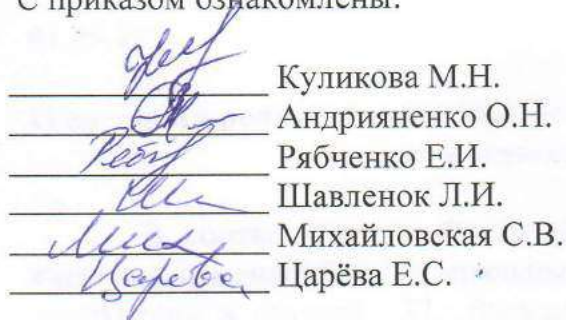 С приказом ознакомлены:
Куликова М.Н.
Андрияненко О.Н.
Рябченко Е.И.
Шавленок Л.И.
Михайловская С.В.
Царёва Е.С.